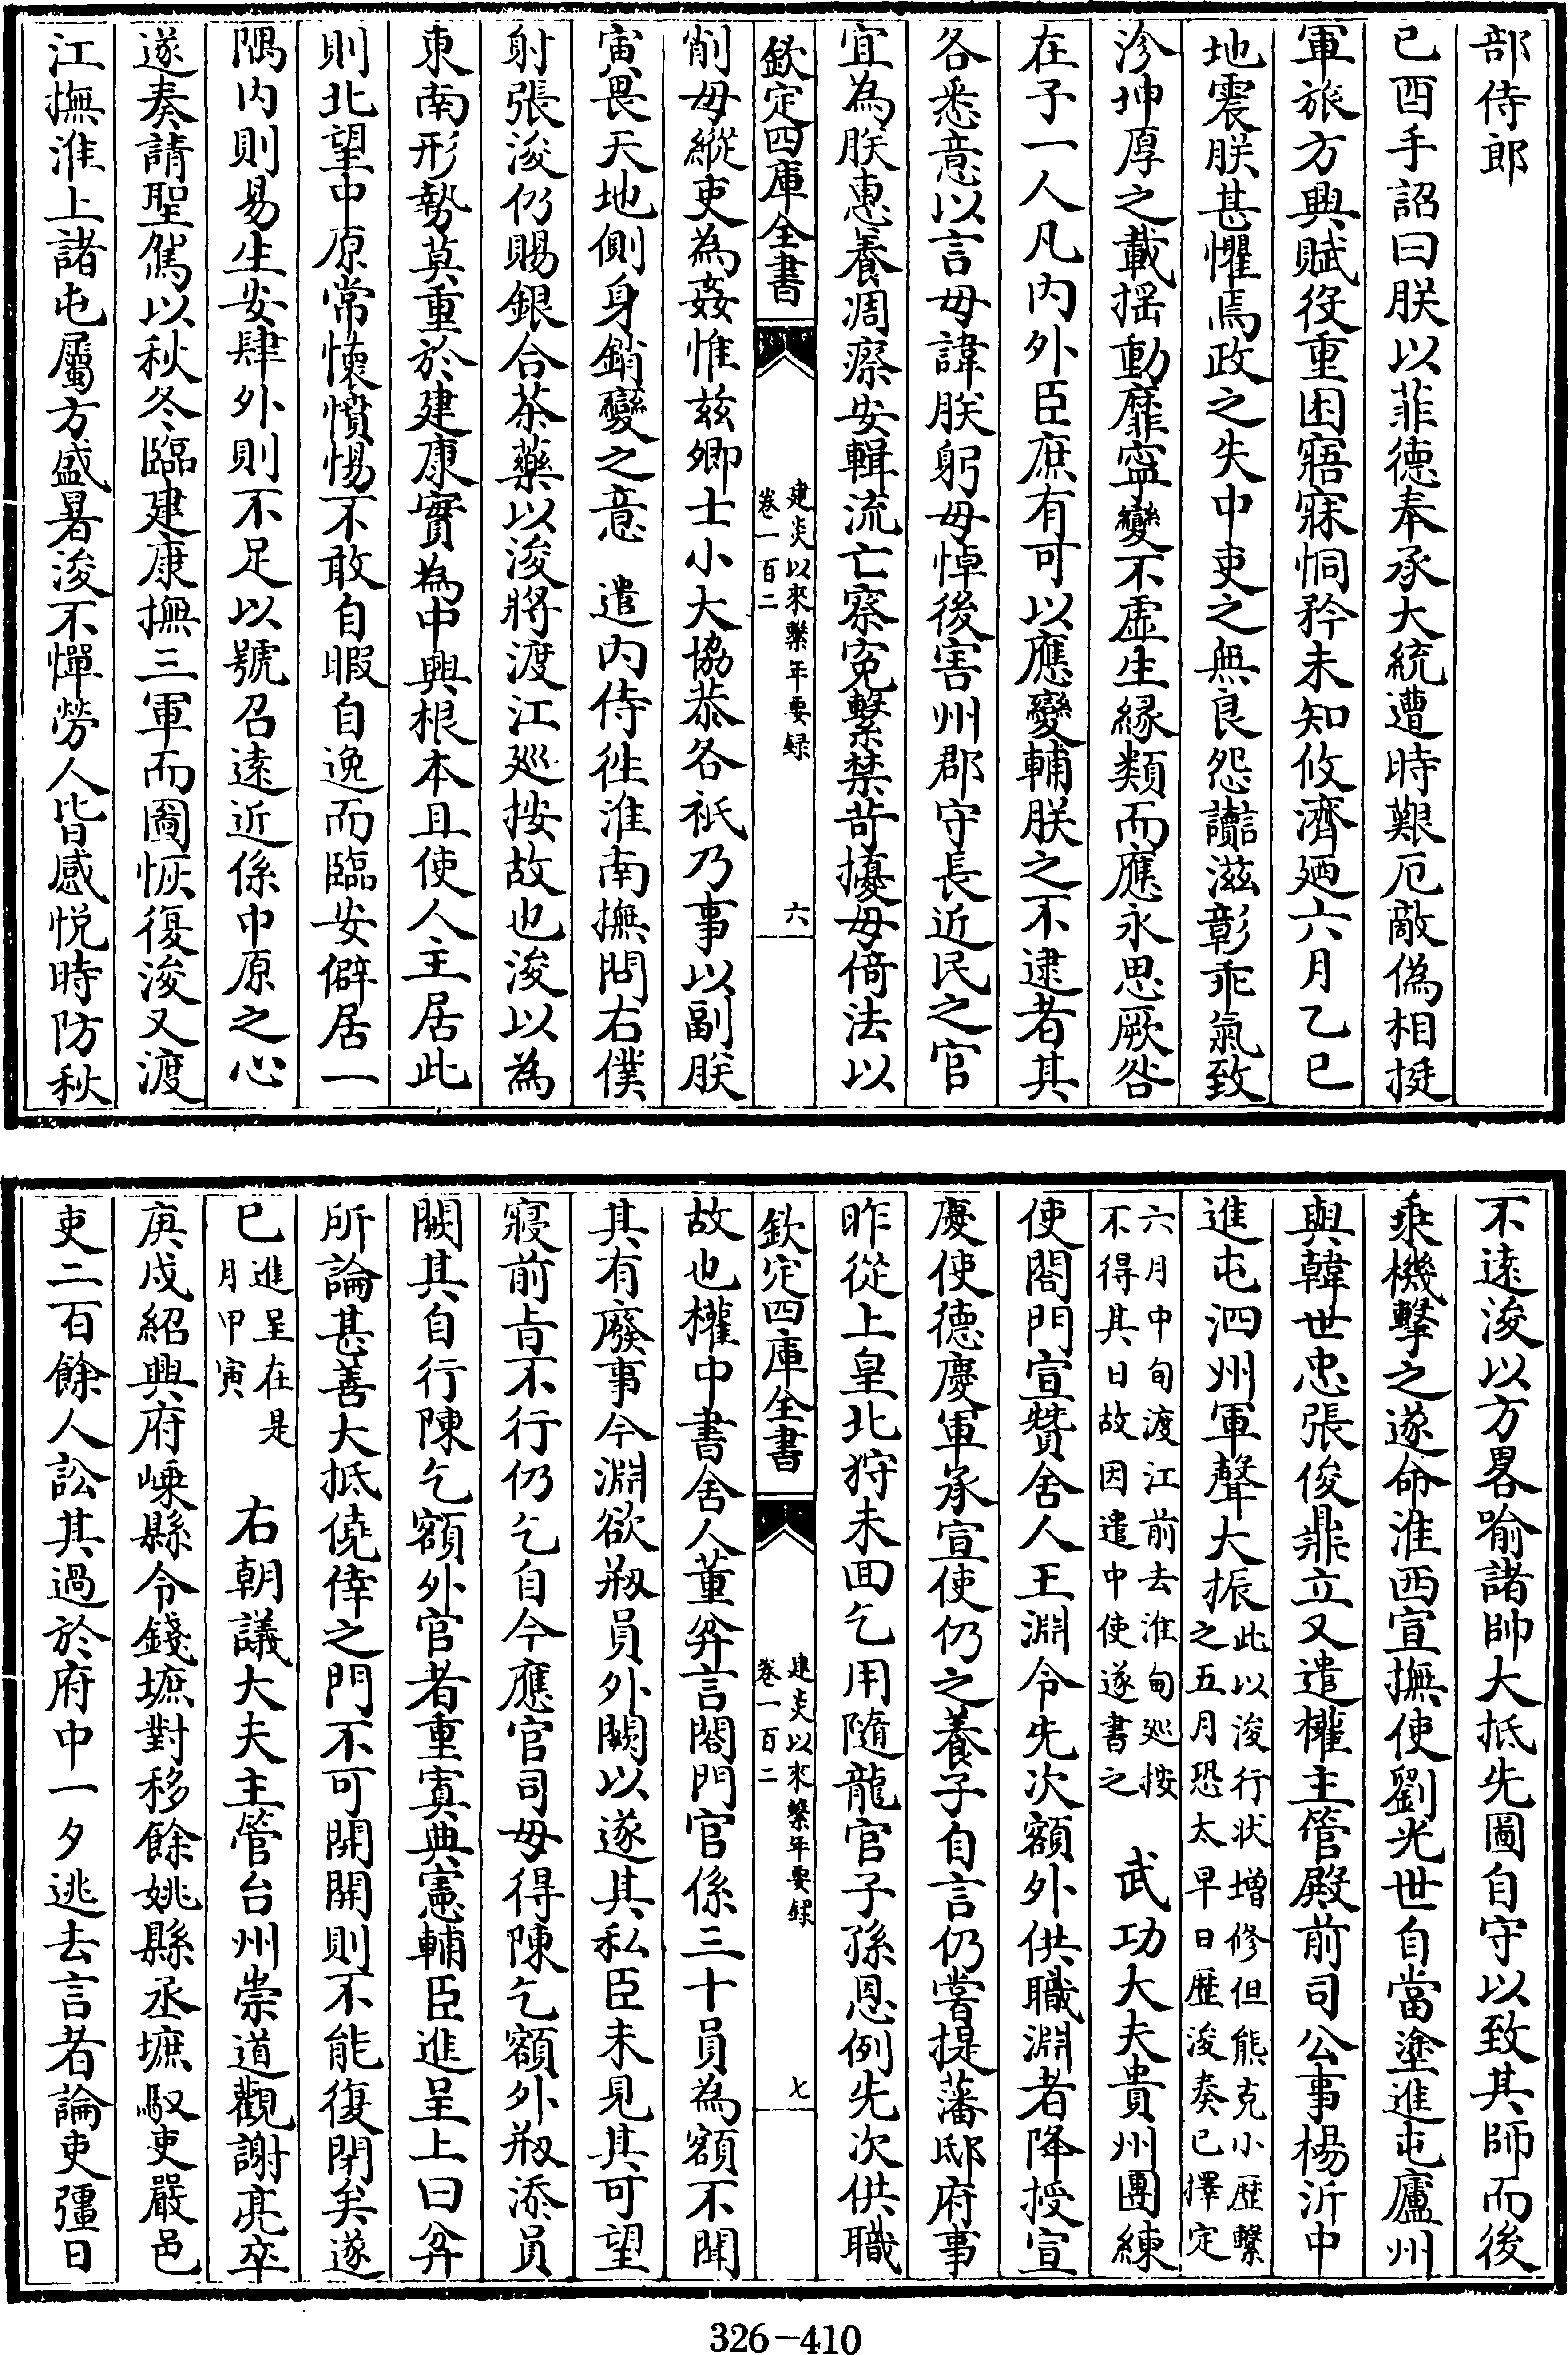 部侍郎
已酉手詔曰朕以菲德奉承大統遭時艱厄敵偽相挺
軍旅方興賦役重困寤寐恫矜未知攸濟廼六月乙巳
地震朕甚懼焉政之失中吏之無良怨讟滋彰乖氣致
沴坤厚之載揺動靡寧變不虚生緣類而應永思厥咎
在予一人凡内外臣庶有可以應變輔朕之不逮者其
各悉意以言毋諱朕躬毋悼後害州郡守長近民之官
宜為朕惠養凋瘵安輯流亡察寃繫禁苛擾毋倚法以
欽定四庫全書
建炎以來繫年要録
卷一百二
六
削毋縱吏為姦惟兹卿士小大協恭各祇乃事以副朕
寅畏天地側身銷變之意 遣内侍徃淮南撫問右僕
射張浚仍賜銀合茶藥以浚將渡江廵按故也浚以為
東南形勢莫重於建康實為中興根本且使人主居此
則北望中原常懐憤惕不敢自暇自逸而臨安僻居一
隅内則易生安肆外則不足以號召遠近係中原之心
遂奏請聖駕以秋冬臨建康撫三軍而圖恢復浚又渡
江撫淮上諸屯屬方盛暑浚不憚勞人皆感悦時防秋
不遠浚以方畧喻諸帥大抵先圖自守以致其師而後
乗機擊之遂命淮西宣撫使劉光世自當塗進屯廬州
與韓世忠張俊鼎立又遣權主管殿前司公事楊沂中
進屯泗州軍聲大振此以浚行状增修但熊克小歴繫
之五月恐太早日歴浚奏已擇定
六月中旬渡江前去淮甸廵按
不得其日故因遣中使遂書之 武功大夫貴州團練
使閤門宣贊舍人王淵令先次額外供職淵者降授宣
慶使德慶軍承宣使仍之養子自言仍嘗提藩邸府事
昨從上皇北狩未回乞用隨龍官子孫恩例先次供職
欽定四庫全書
建炎以來繫年要録
卷一百二
七
故也權中書舍人董弅言閤門官係三十員為額不聞
其有廢事今淵欲剏員外闕以遂其私臣未見其可望
寢前旨不行仍乞自今應官司毋得陳乞額外剏添員
闕其自行陳乞額外官者重寘典憲輔臣進呈上曰弅
所論甚善大抵僥倖之門不可開開則不能復閉矣遂
已進呈在是
月甲寅 右朝議大夫主管台州崇道觀謝亮卒
庚戌紹興府嵊縣令錢摭對移餘姚縣丞摭馭吏嚴邑
吏二百餘人訟其過於府中一夕逃去言者論吏彊日
326-410